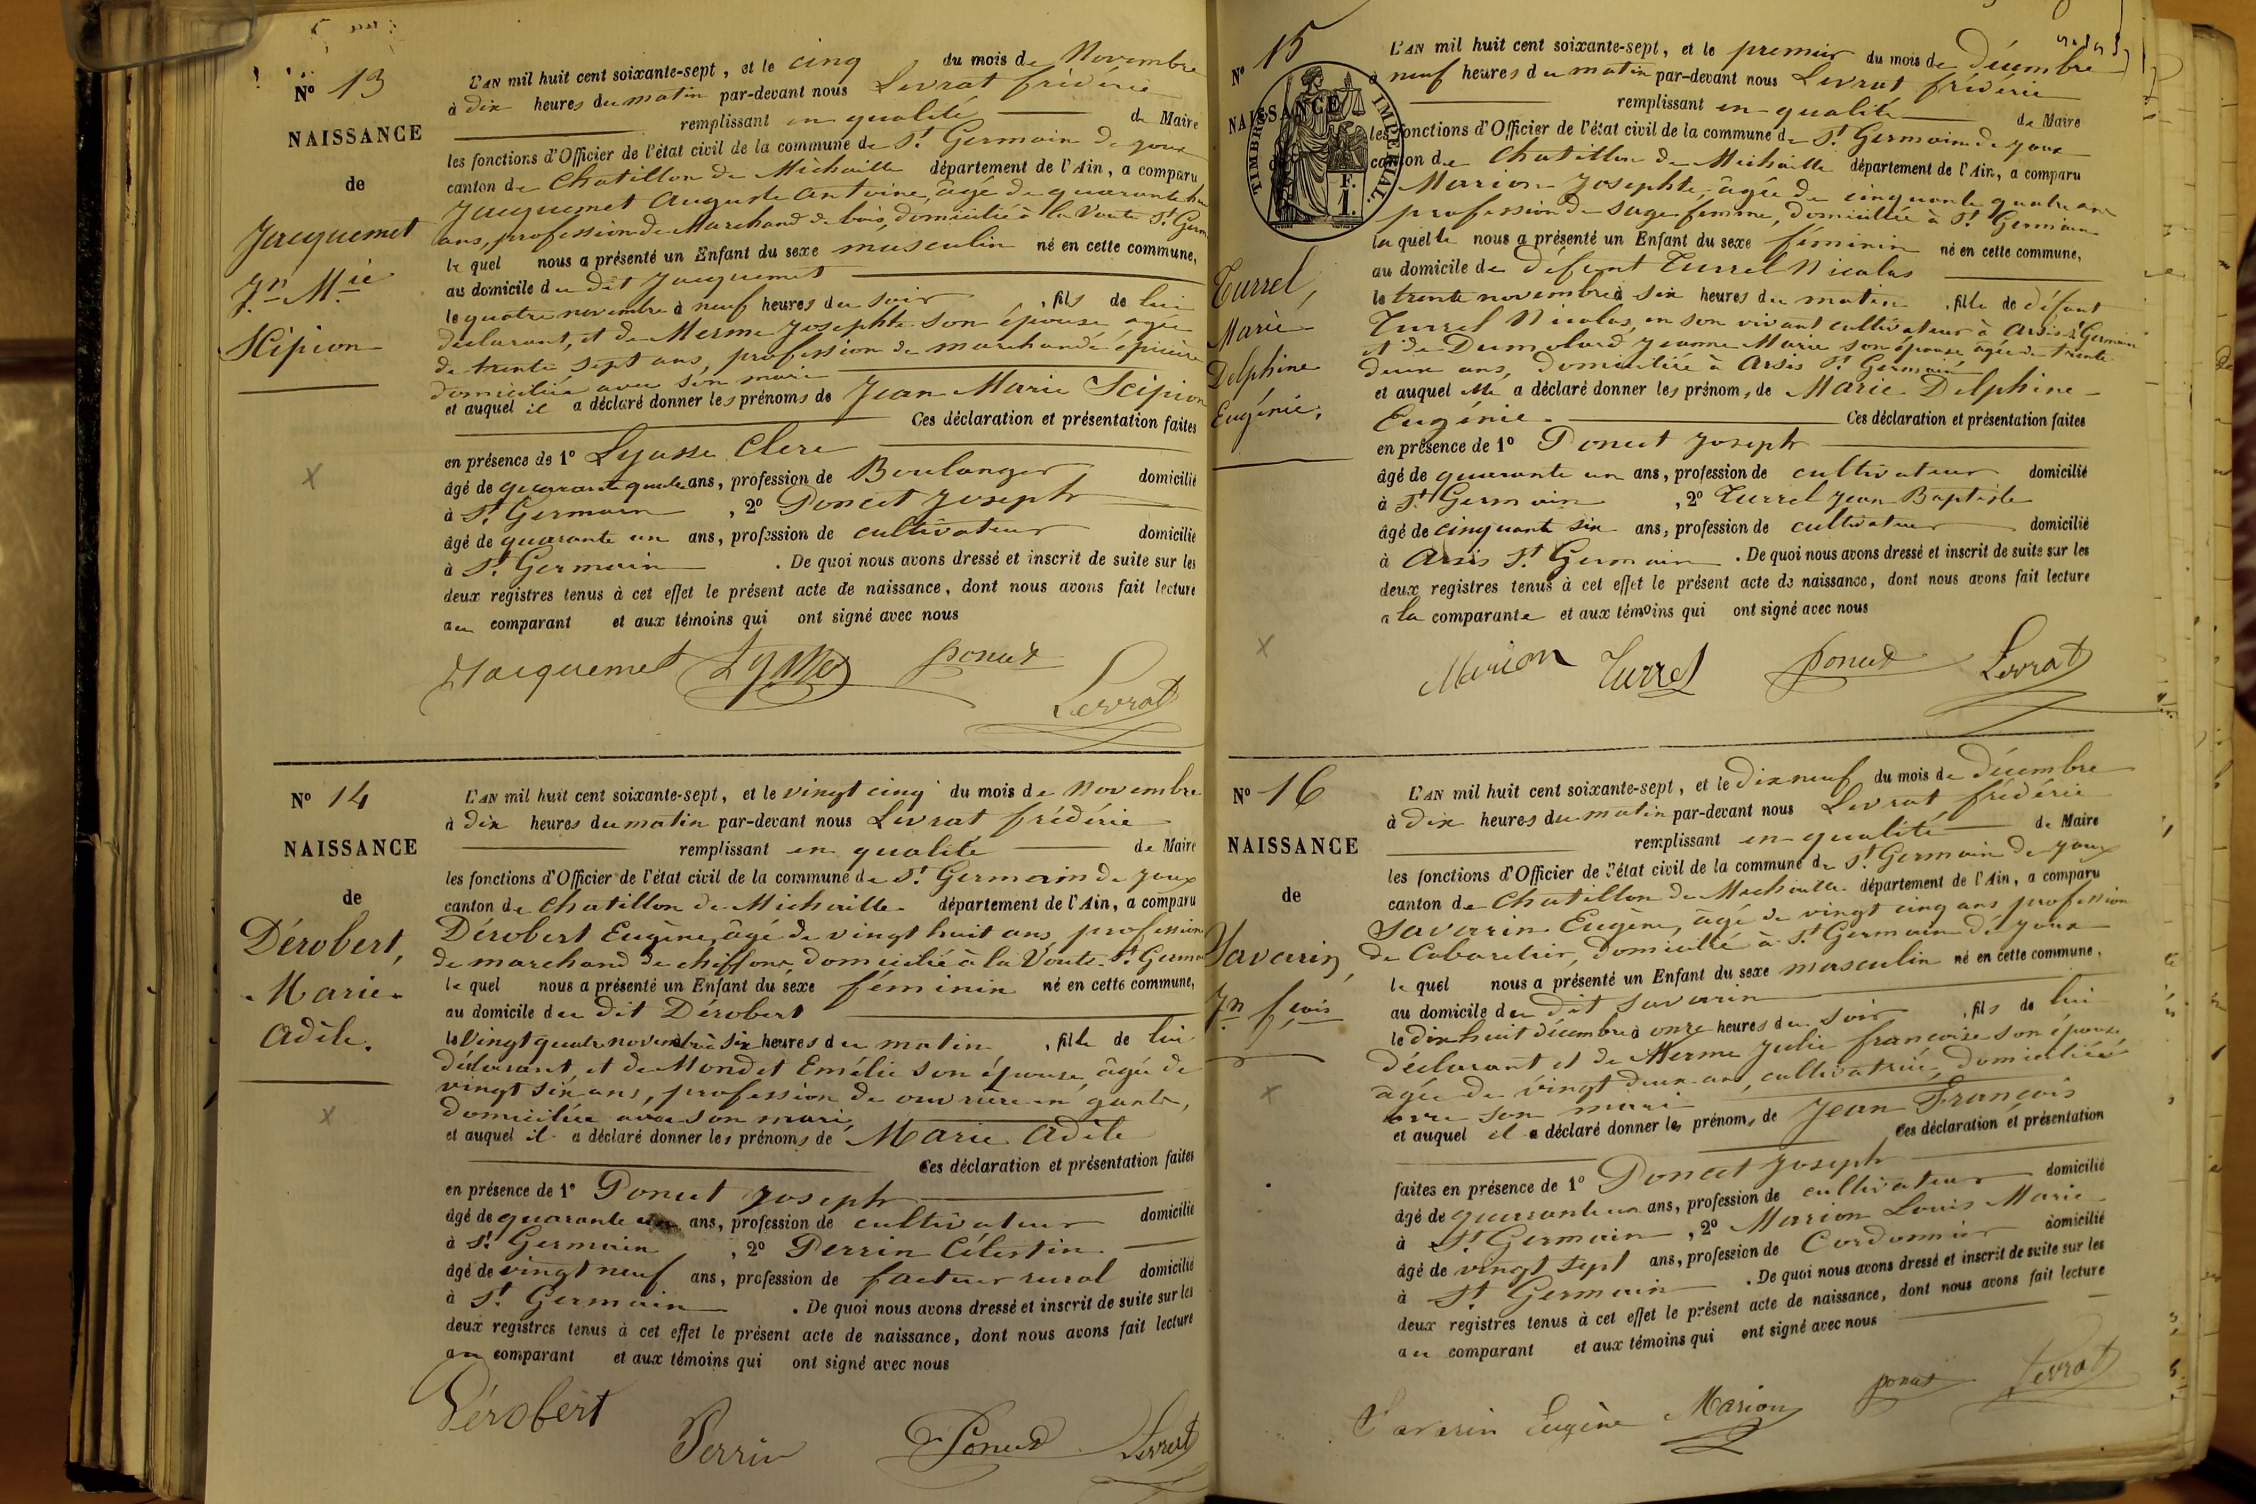 Nº 13
NAISSANCE
de
Jacquemet
Jn Mie
Scipion
L'AN mil huit cent soixante-sept, et le cinq du mois de Novembre
à dix heures du matin par-devant nous Levrat frédéric
remplissant en qualité de Maire
les fonctions d'Officier de l'état civil de la commune de St Germain de joux
canton de Chatillon de Michaille département de l'Ain, a comparu
Jacquemet Auguste Antoine, âgé de quarante
ans, profession de Marchand de bois, domicilié à la Voute St Germ
le quel nous a présenté un Enfant du sexe masculin né en cette commune,
au domicile du dit Jacquemet
le quatre novembre à neuf heures du soir, fils de lui
déclarant, et de Merme Josephte son épouse agée
de trente sept ans, profession de marchande épicière
domiciliée avec son mari
et auquel il a déclaré donner les prénoms de Jean Marie Scipion
Ces déclaration et présentation faites
en présence de 1º Lyasse Clerc
âgé de quarante quatre ans, profession de Boulanger domicilié
à St Germain, 2º Poncet Joseph
âgé de quarante un ans, profession de cultivateur domicilié
à St Germain. De quoi nous avons dressé et inscrit de suite sur les
deux registres tenus à cet effet le présent acte de naissance, dont nous avons fait lecture
au comparant et aux témoins qui ont signé avec nous
Jacquemet Lyasse Poncet
Levrat
Nº 14
NAISSANCE
de
Dérobert,
Marie
Adèle.
L'AN mil huit cent soixante-sept, et le vingt cinq du mois de Novembre
à dix heures du matin par-devant nous Levrat frédéric
remplissant en qualité de Maire
les fonctions d'Officier de l'état civil de la commune de St Germain de joux
canton de Chatillon de Michaille département de l'Ain, a comparu
Dérobert Eugène, âgé de vingt huit ans, profession
de marchand de chiffons, domicilié à la Voute St Germ
le quel nous a présenté un Enfant du sexe féminin né en cette commune,
au domicile du dit Dérobert
le vingt quatre novembre à six heures du matin, fille de lui
déclarant, et de Mondet Emélie son épouse, âgée de
vingt six ans, profession de ouvrière en gants,
domiciliée avec son mari,
et auquel il a déclaré donner les prénoms de Marie Adèle
Ces déclaration et présentation faites
en présence de 1º Poncet Joseph
âgé de quarante un ans, profession de cultivateur domicilié
à St Germain, 2º Perrin Célestin
âgé de vingt neuf ans, profession de facteur rural domicilié
à St Germain. De quoi nous avons dressé et inscrit de suite sur les
deux registres tenus à cet effet le présent acte de naissance, dont nous avons fait lecture
au comparant et aux témoins qui ont signé avec nous
Dérobert
Perrin Poncet Levrat
Nº 15
NAISSANCE
TIMBRE IMPERIAL.
F. 1.
Turrel,
Marie
Delphine
Eugénie.
L'AN mil huit cent soixante-sept, et le premier du mois de décembre
à neuf heures du matin par-devant nous Levrat frédéric
remplissant en qualité de Maire
les fonctions d'Officier de l'état civil de la commune de St Germain de joux
canton de Chatillon de Michaille département de l'Ain, a comparu
Marion Josephte, âgée de cinquante quatre ans
profession de sage femme, domiciliée à St Germain
la quelle nous a présenté un Enfant du sexe féminin né en cette commune,
au domicile de défunt Turrel Nicolas
le trente novembre à six heures du matin, fille de défunt
Turrel Nicolas, en son vivant cultivateur à Arsis St Germain
et de Dumolard Jeanne Marie son épouse âgée de trente
deux ans, domiciliée à Arsis St Germain
et auquel elle a déclaré donner les prénoms de Marie Delphine
Eugénie. Ces déclaration et présentation faites
en présence de 1º Poncet Joseph
âgé de quarante un ans, profession de cultivateur domicilié
à St Germain, 2º Turrel Jean Baptiste
âgé de cinquante six ans, profession de cultivateur domicilié
à Arsis St Germain. De quoi nous avons dressé et inscrit de suite sur les
deux registres tenus à cet effet le présent acte de naissance, dont nous avons fait lecture
a la comparante et aux témoins qui ont signé avec nous
Marion Turrel Poncet Levrat
Nº 16
NAISSANCE
de
Savarin,
Jn fçois
L'AN mil huit cent soixante-sept, et le dix neuf du mois de décembre
à dix heures du matin par-devant nous Levrat frédéric
remplissant en qualité de Maire
les fonctions d'Officier de l'état civil de la commune de St Germain de joux
canton de Chatillon de Michaille département de l'Ain, a comparu
Savarin Eugène, âgé de vingt cinq ans profession
de Cabaretier, domicilié à St Germain de joux
le quel nous a présenté un Enfant du sexe masculin né en cette commune,
au domicile du dit Savarin
le dix huit décembre à onze heures du soir, fils de lui
déclarant et de Merme Julie françoise son épouse
âgée de vingt deux ans, cultivatrice, domiciliée
avec son mari
et auquel il a déclaré donner les prénoms de Jean François
Ces déclaration et présentation
faites en présence de 1º Poncet Joseph
âgé de quarante un ans, profession de cultivateur domicilié
à St Germain, 2º Marion Louis Marie
âgé de vingt sept ans, profession de Cordonnier domicilié
à St Germain. De quoi nous avons dressé et inscrit de suite sur les
deux registres tenus à cet effet le présent acte de naissance, dont nous avons fait lecture
au comparant et aux témoins qui ont signé avec nous
Savarin Eugène Marion Poncet Levrat